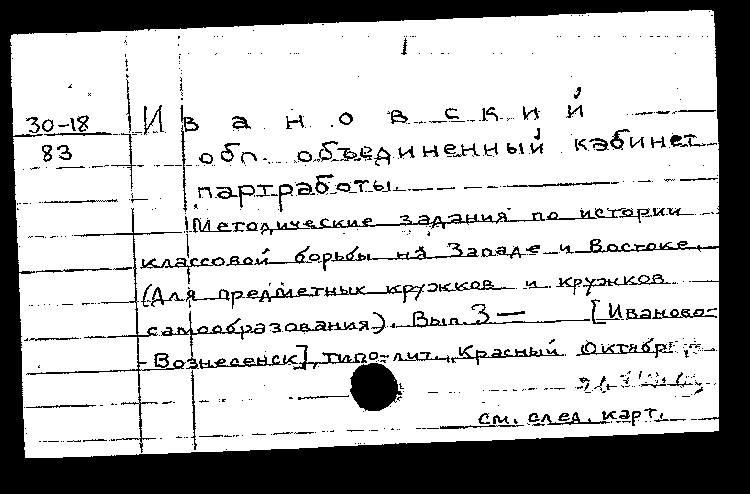 1
30-18 Ивановский
83 обл. объединенный кабинет
партработы.
Методические задания по истории
классовой борьбы на Западе и Востоке.
(Для предметных кружков и кружков
самообразования). Вып. 3— [Иваново-
-Вознесенск], типо-лит. „Красный Октябрь
см. след. карт.